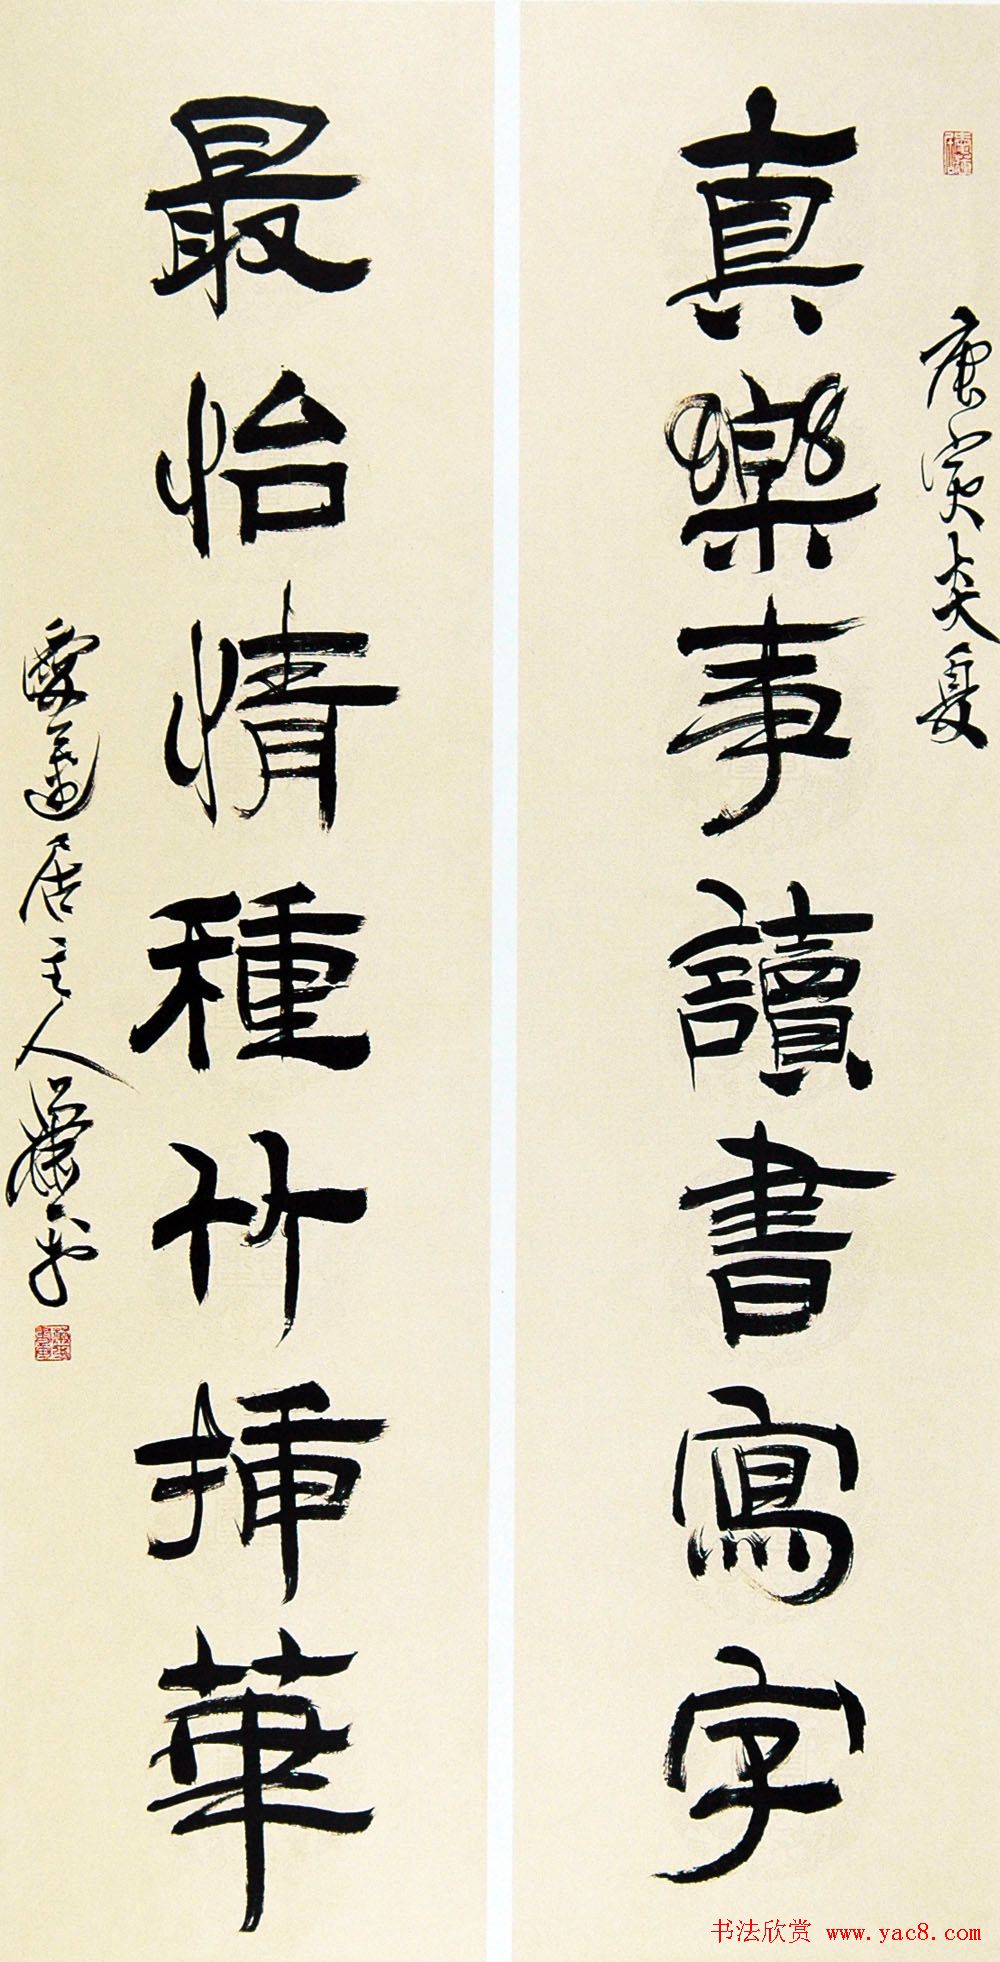 庚寅炎夏
真樂事讀書寫字
最怡情種竹揷華
居主人
书法欣赏 www.yac8.com